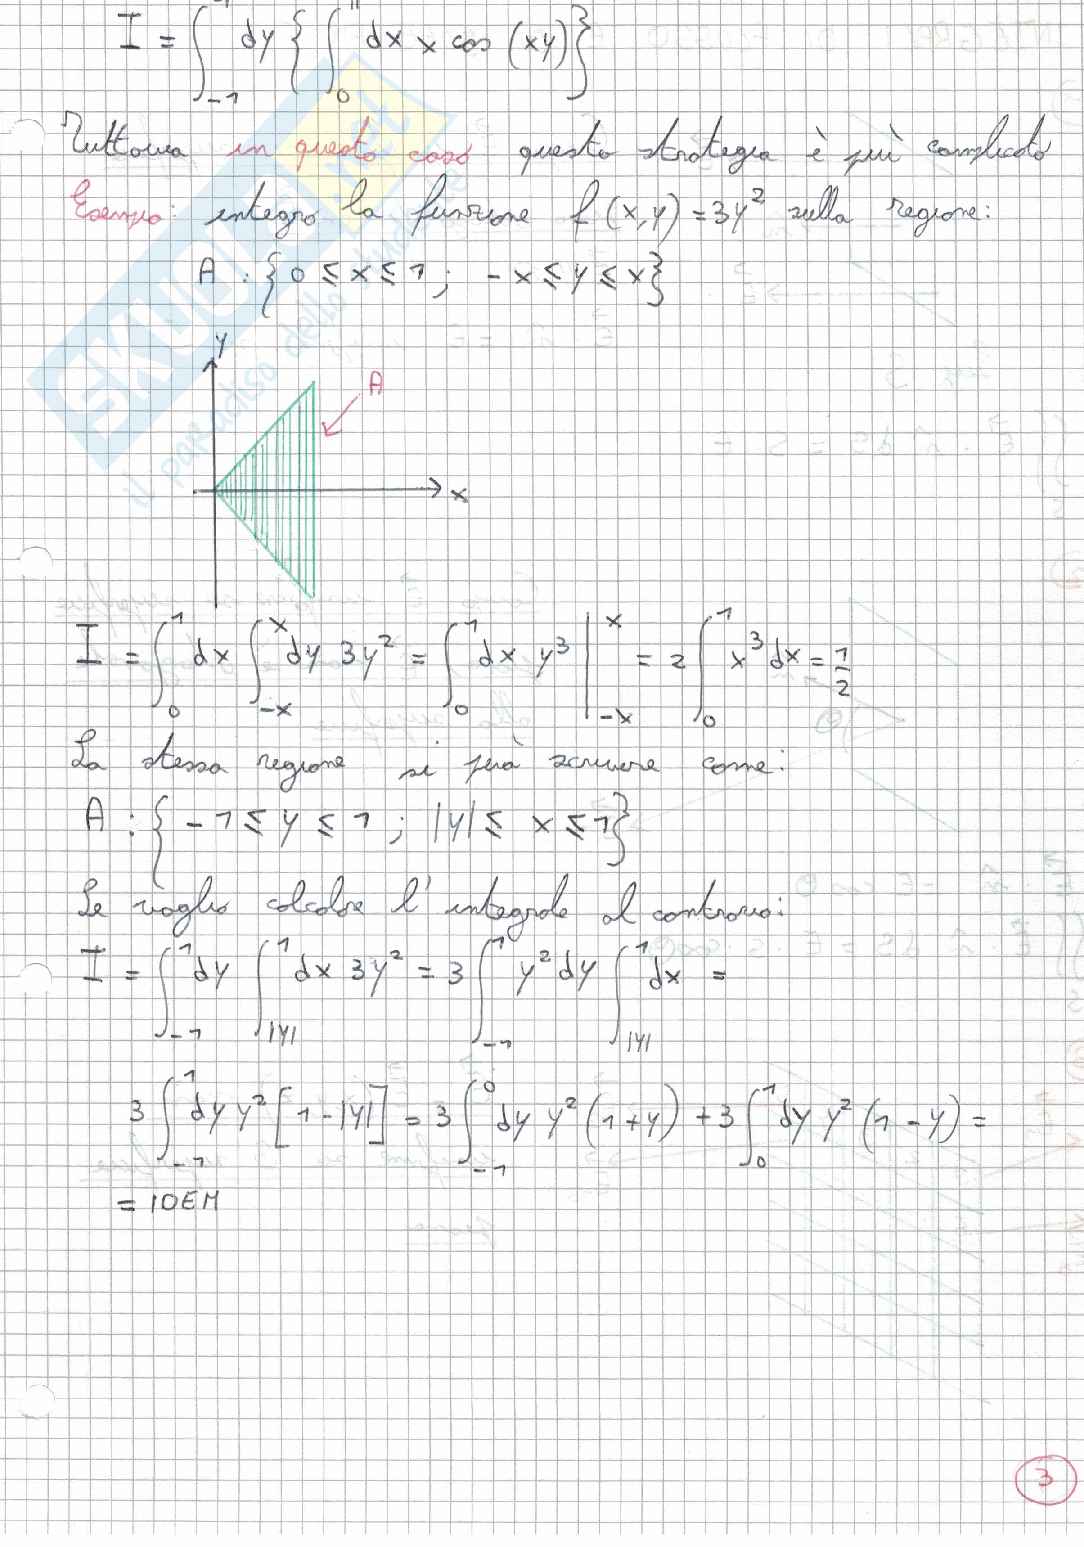 I = ∫_{-1}^{1} dy { ∫_{0}^{π} dx x cos (xy) }
Tuttavia in questo caso questa strategia è più complicata
Esempio: integro la funzione f(x,y) = 3y² sulla regione:
A : { 0 ≤ x ≤ 1 ; -x ≤ y ≤ x }
y
A
x
I = ∫_{0}^{1} dx ∫_{-x}^{x} dy 3y² = ∫_{0}^{1} dx y³ |_{-x}^{x} = 2 ∫_{0}^{1} x³ dx = 1/2
La stessa regione si può scrivere come:
A : { -1 ≤ y ≤ 1 ; |y| ≤ x ≤ 1 }
Se voglio calcolare l'integrale al contrario:
I = ∫_{-1}^{1} dy ∫_{|y|}^{1} dx 3y² = 3 ∫_{-1}^{1} y² dy ∫_{|y|}^{1} dx =
3 ∫_{-1}^{1} dy y² [1 - |y|] = 3 ∫_{-1}^{0} dy y² (1+y) + 3 ∫_{0}^{1} dy y² (1-y) =
= IDEM
3
SKUOLA.net
il paradiso dello studente